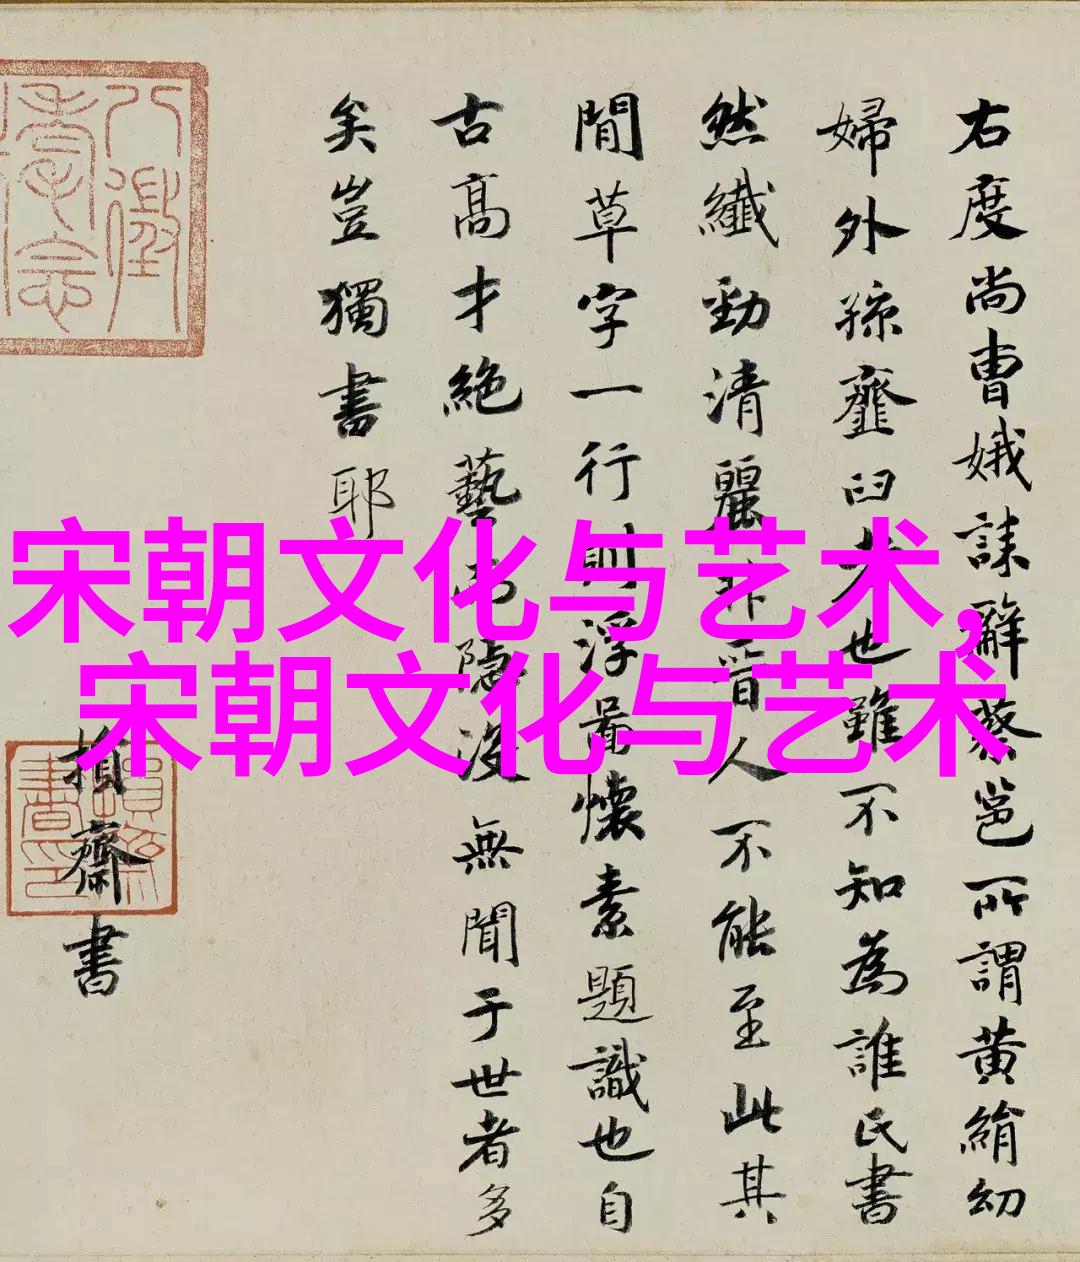 右度尚曹娥誄辭蔡邕所謂黄絹幼
婦外孫虀臼者也雖不知為誰氏書
然纖勁清麗非晉人不能至此其
間草字一行則浮圖懷素題識也自
古高才絶藝而隐没無聞于世者多
矣豈獨書耶
損齋書
宋朝文化与艺术,
宋朝文化与艺术